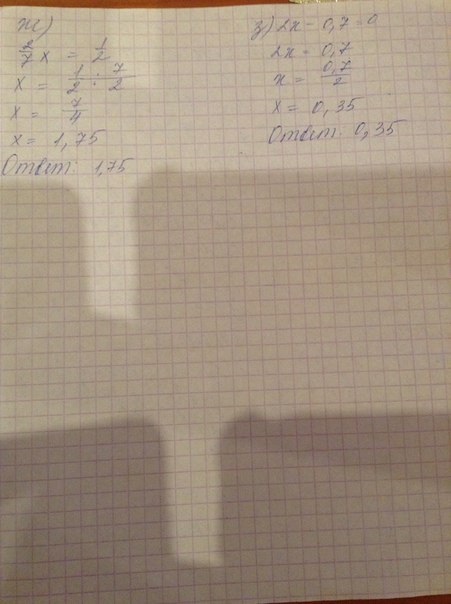 ж)
x = 1/2
x = 1/2 : 7/2
x = 7/4
x = 1,75
Ответ: 1,75
з) 2x - 0,7 = 0
2x = 0,7
x = 0,7/2
x = 0,35
Ответ: 0,35